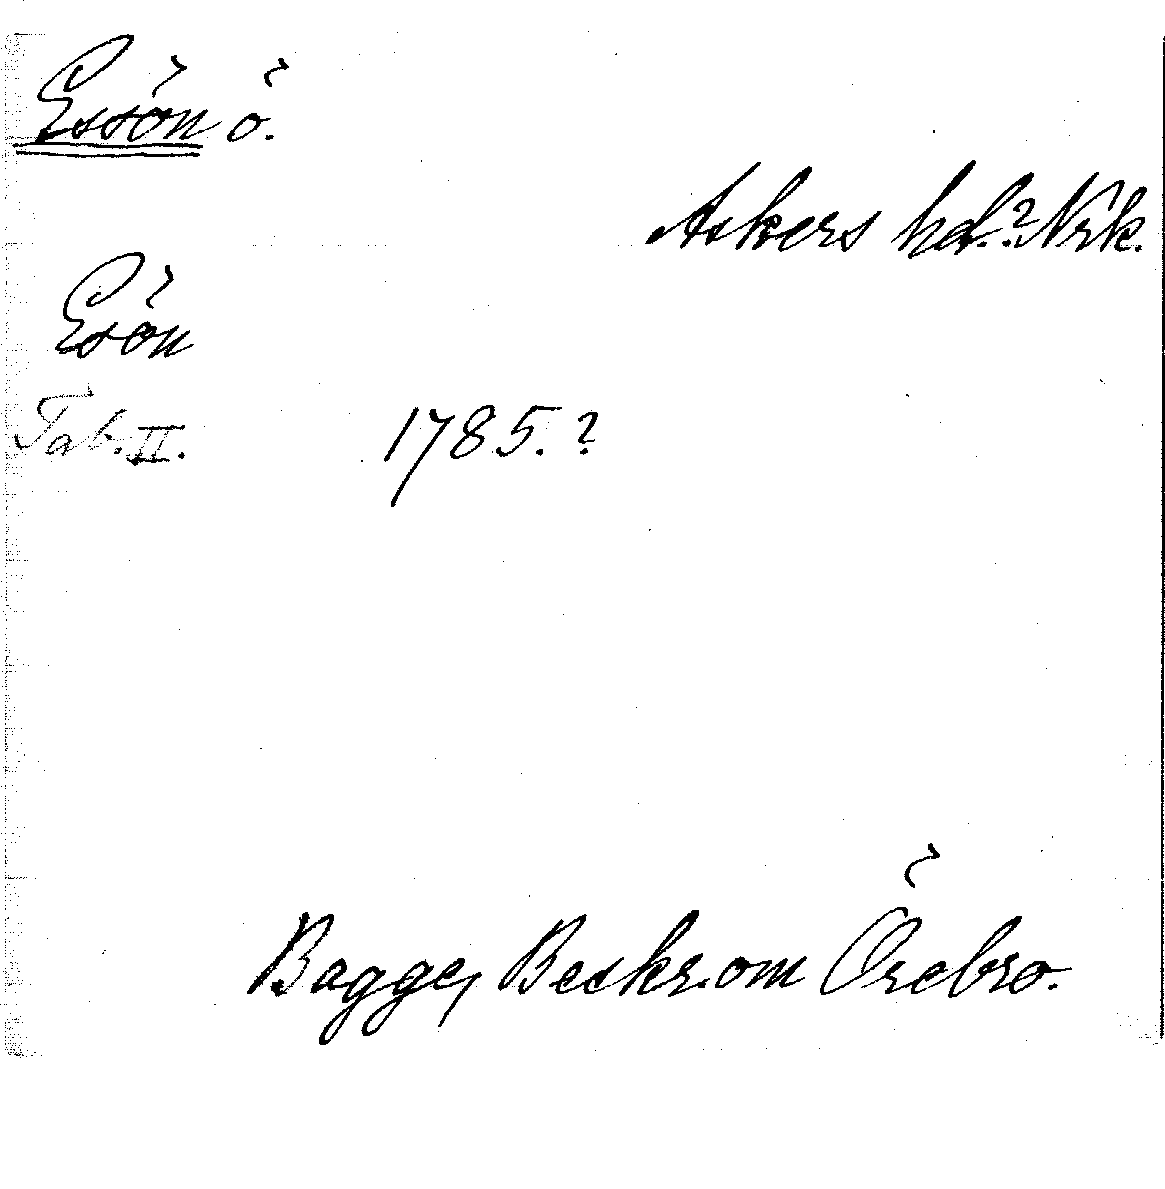 Essön ö.
Askers hd.? Nrk.
Esön
Tab. II. 1785.?
Bagge, Beskr. om Örebro.